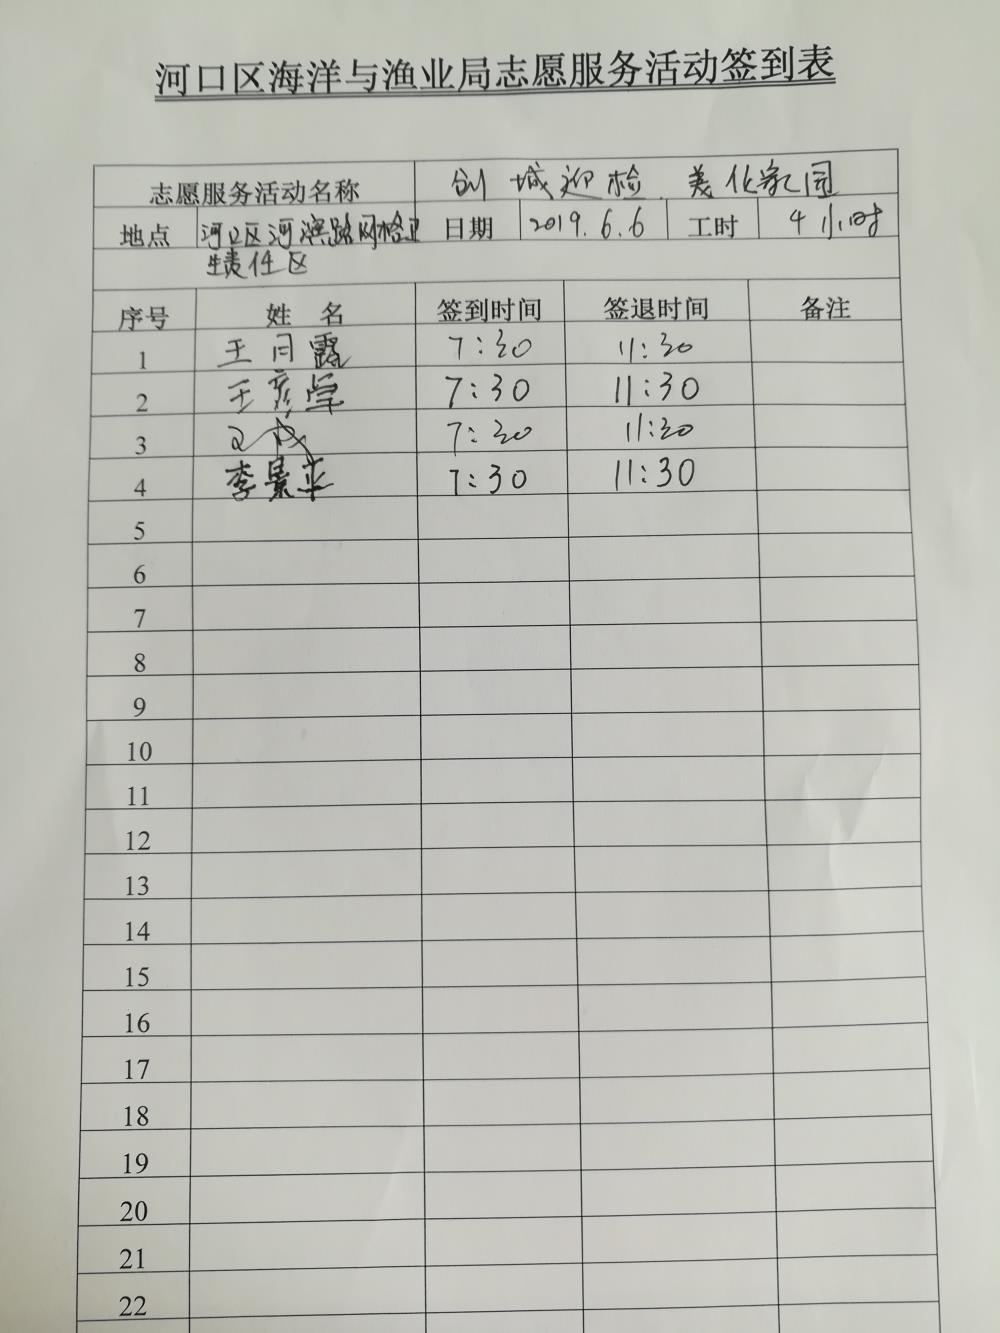 河口区海洋与渔业局志愿服务活动签到表
志愿服务活动名称 创城迎检 美化家园
地点 河口区河滨路网格卫 日期 2019.6.6 工时 4小时
生责任区
序号 姓名 签到时间 签退时间 备注
1 王月露 7:30 11:30
2 王彦堂 7:30 11:30
3 7:30 11:30
4 李景平 7:30 11:30
5
6
7
8
9
10
11
12
13
14
15
16
17
18
19
20
21
22